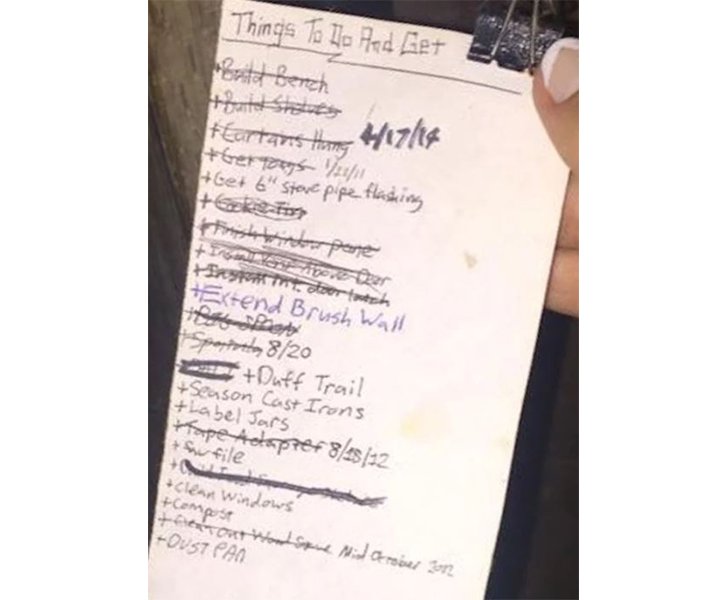 Things To Do And Get
+Build Bench
+Build Shelves
+Curtains Hung 4/17/14
+Get tongs 1/22/11
+Get 6" stove pipe flashing
+Cookie Tins
+Finish Window pane
+Install Above Door
+Install int. door latch
+Extend Brush Wall
+Bug spray
+ 8/20
+Duff Trail
+Season Cast Irons
+Label Jars
+Tape Adapter 8/18/12
+Saw file
+
+Clean Windows
+Compost
+Clean Out Wood Stove Mid October 2012
+DUST PAN